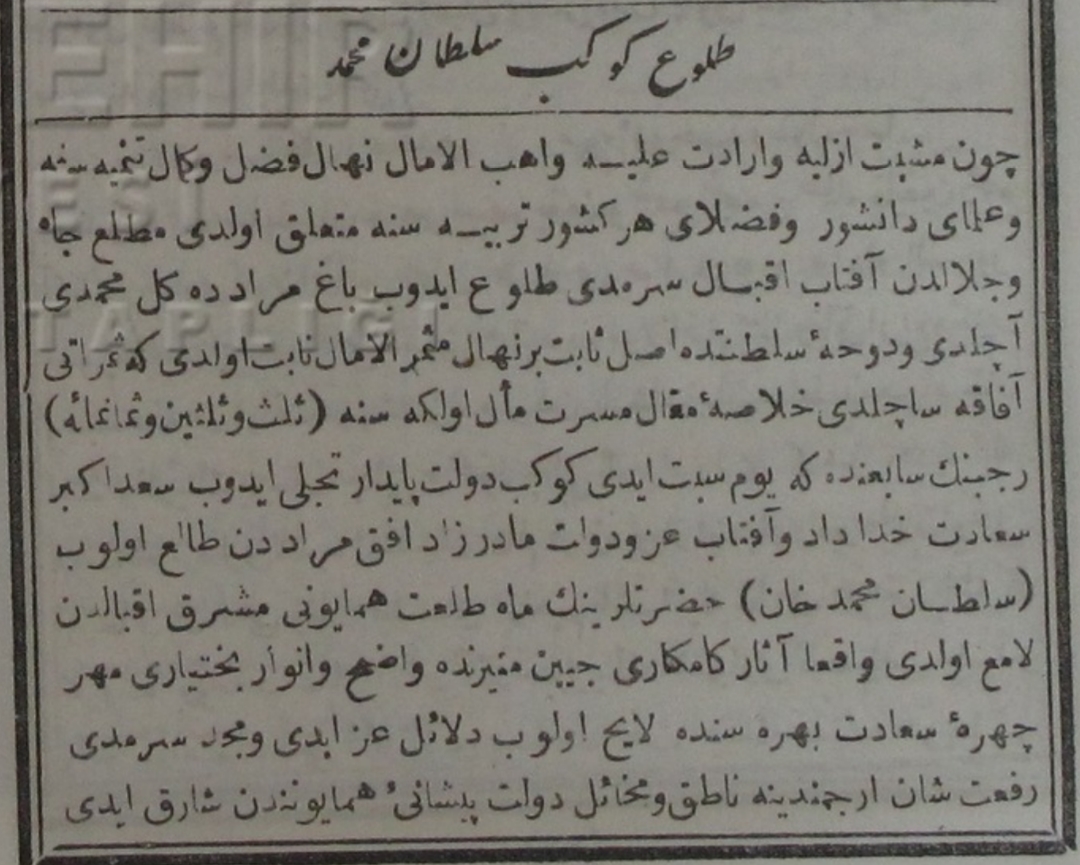 طلوع كوكب سلطان محمد
چون مشيت ازليه وارادت عليــه واهب الامال نهال فضل وكمال تنميه سنه
وعلماى دانشور وفضلاى هر كشور تربيــه سنه متعلق اولدى مطلع جاه
وجلالدن آفتاب اقبــال سرمدى طلوع ايدوب باغ مرادده كل محمدى
آچلدى ودوحۀ سلطنتده اصل ثابت برنهال مثمر الامال نابت اولدى كه ثمراتى
آفاقه ساچلدى خلاصۀ مقال مسرت مأل اولكه سنه (ثلث وثلثين وثمانمائه)
رجبنك سابعنده كه يوم سبت ايدى كوكب دولت پايدار تجلى ايدوب سعد اكبر
سعادت خدا داد وآفتاب عز ودولت مادر زاد افق مراددن طالع اولوب
(سلطــان محمد خان) حضرتلرينك ماه طلعت همايونى مشرق اقبالدن
لامع اولدى واقعا آثار كامكارى جبين منيرنده واضح وانوار بختيارى مهر
چهرۀ سعادت بهره سنده لايح اولوب دلائل عز ابدى ومجد سرمدى
رفعت شان ارجمندينه ناطق ومخائل دولت پيشانئ همايونندن شارق ايدى
EHIR
ESI
TAPLIGI